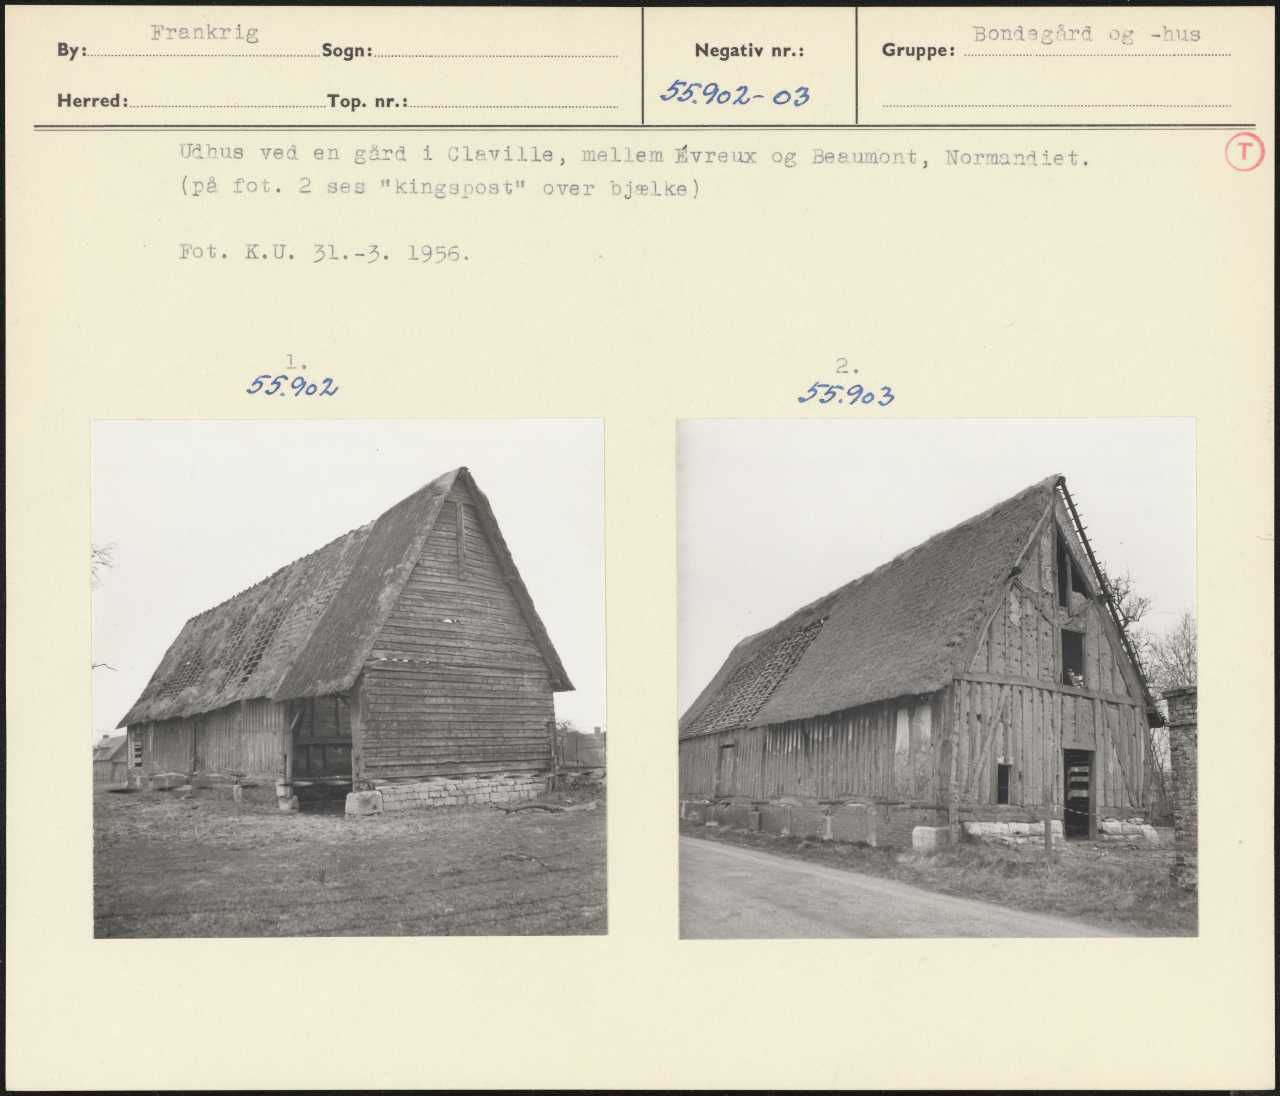 By: Frankrig Sogn: Negativ nr.: Gruppe: Bondegård og -hus
Herred: Top. nr.: 55.902-03
Udhus ved en gård i Claville, mellem Évreux og Beaumont, Normandiet.
(på fot. 2 ses "kingspost" over bjælke)
T
Fot. K.U. 31.-3. 1956.
1.
55.902
2.
55.903